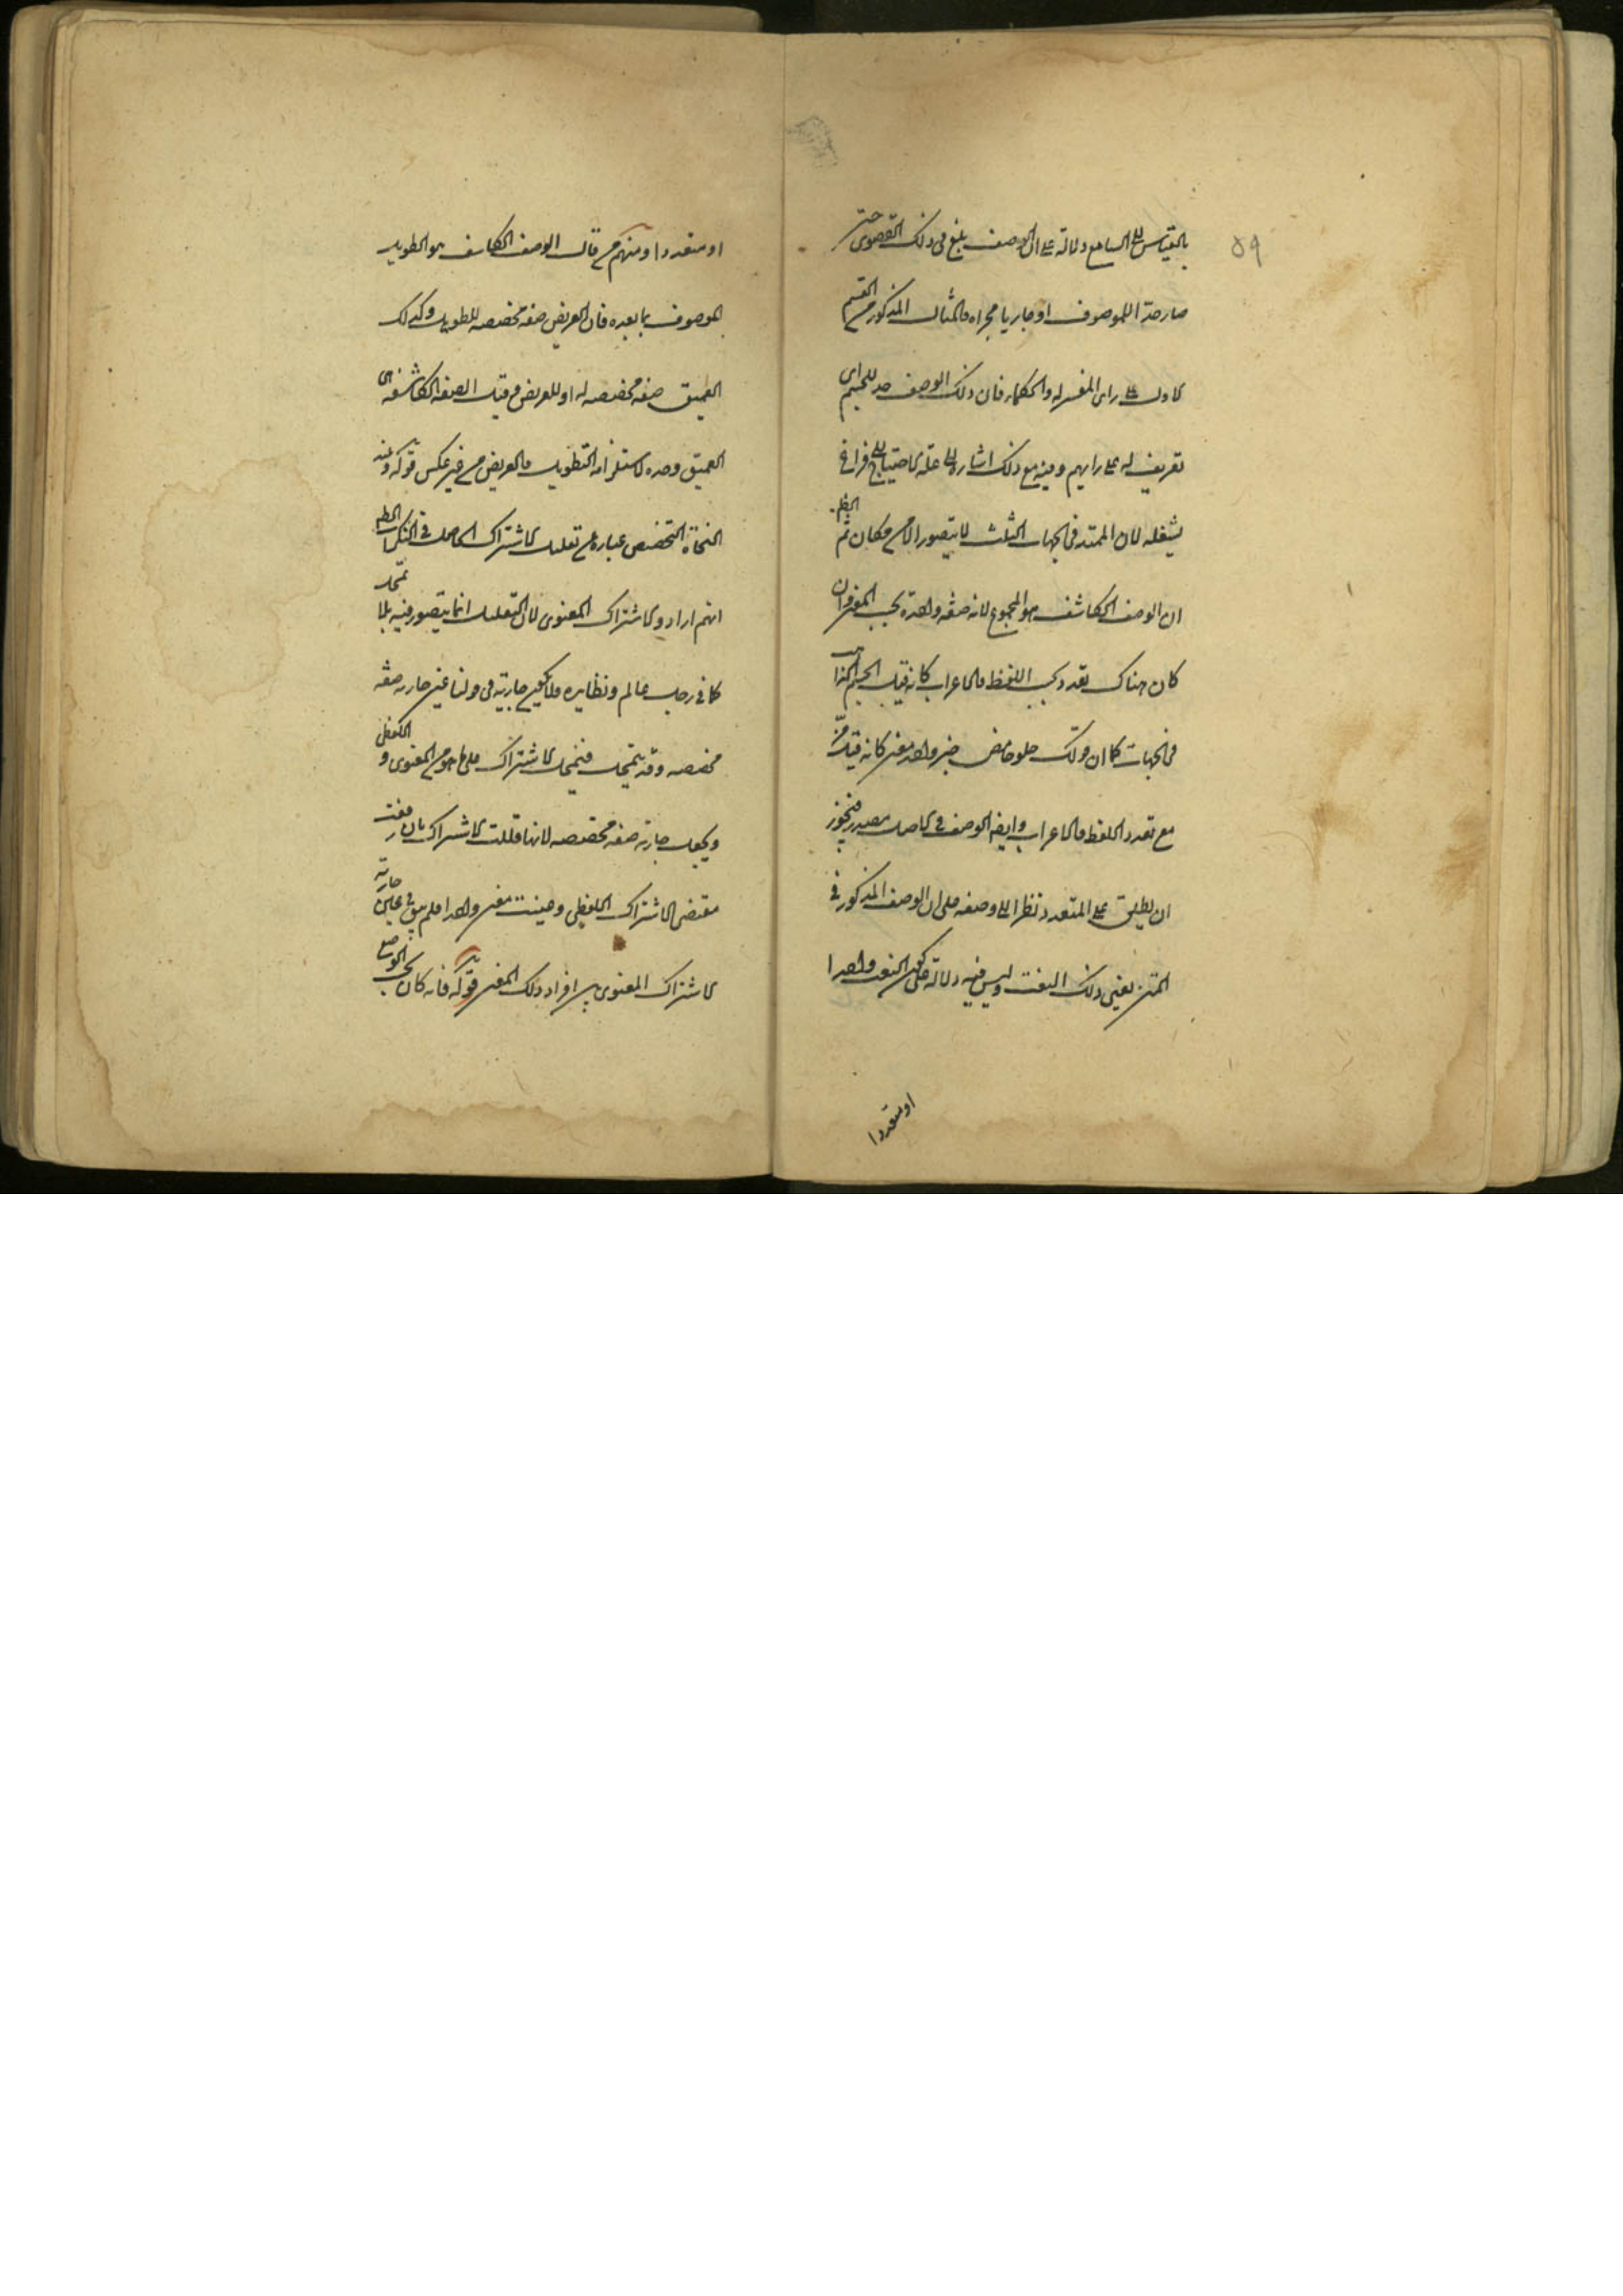 ٥٩
بالقياس الى السامع دلالة على ان الوصف بلغ فى ذلك القصوى حتى
صار حدا للموصوف او جاريا مجراه والمثال المذكور من القسم
الاول على راى المعتزلة والحكماء فان ذلك الوصف حد للجسم اى
تعريف له على رايهم وفيه مع ذلك اشارة الى علة الاحتياج الى فراغ
يشغله لان الممتد فى الجهات الثلث لا يتصور الا فى مكان ثم الظاهر
ان الوصف الكاشف هو المجموع لانه صفة واحدة بحسب المعنى وان
كان هناك تعدد بحسب اللفظ والاعراب كانه قيل الجسم الذاهب
فى الجهات كما ان قولك حلو حامض خبر واحد معنى كانه قيل مز
مع تعدد اللفظ والاعراب وايضا الوصف فى الاصل مصدر فيجوز
ان يطلق على المتعدد نظرا الى وصفه على ان الوصف المذكور فى
المتن يعنى ذلك النعت وليس فيه دلالة على كون النعت واحدا
او متعددا
او متعددا ومنهم من قال الوصف الكاشف هو الطويل
الموصوف بما بعده فان العريض صفة مخصصة للطويل وكذلك
العميق صفة مخصصة له او للعريض وقيل الصفة الكاشفة هى
العميق وحده لاستلزامه الطويل والعريض من غير عكس قوله وعند
النحاة التخصيص عبارة عن تقليل الاشتراك الحاصل فى النكرات الظاهر
انهم ارادوا الاشتراك المعنوى لان التقليل انما يتصور فيه بلا تمحل
كما فى رجل عالم ونظايره فلا يكون جارية فى قولنا عين جارية صفة
مخصصة وقد يتمحل فيحمل الاشتراك على ما هو اعم من المعنوى و اللفظى
ويجعل جارية صفة مخصصة لانها قللت الاشتراك بان رفعت
مقتضى الاشتراك اللفظى وعينت معنى واحدا فلم يبق فى عين جارية
الاشتراك المعنوى بين افراد ذلك المعنى قوله فانه كان بحسب الوضع